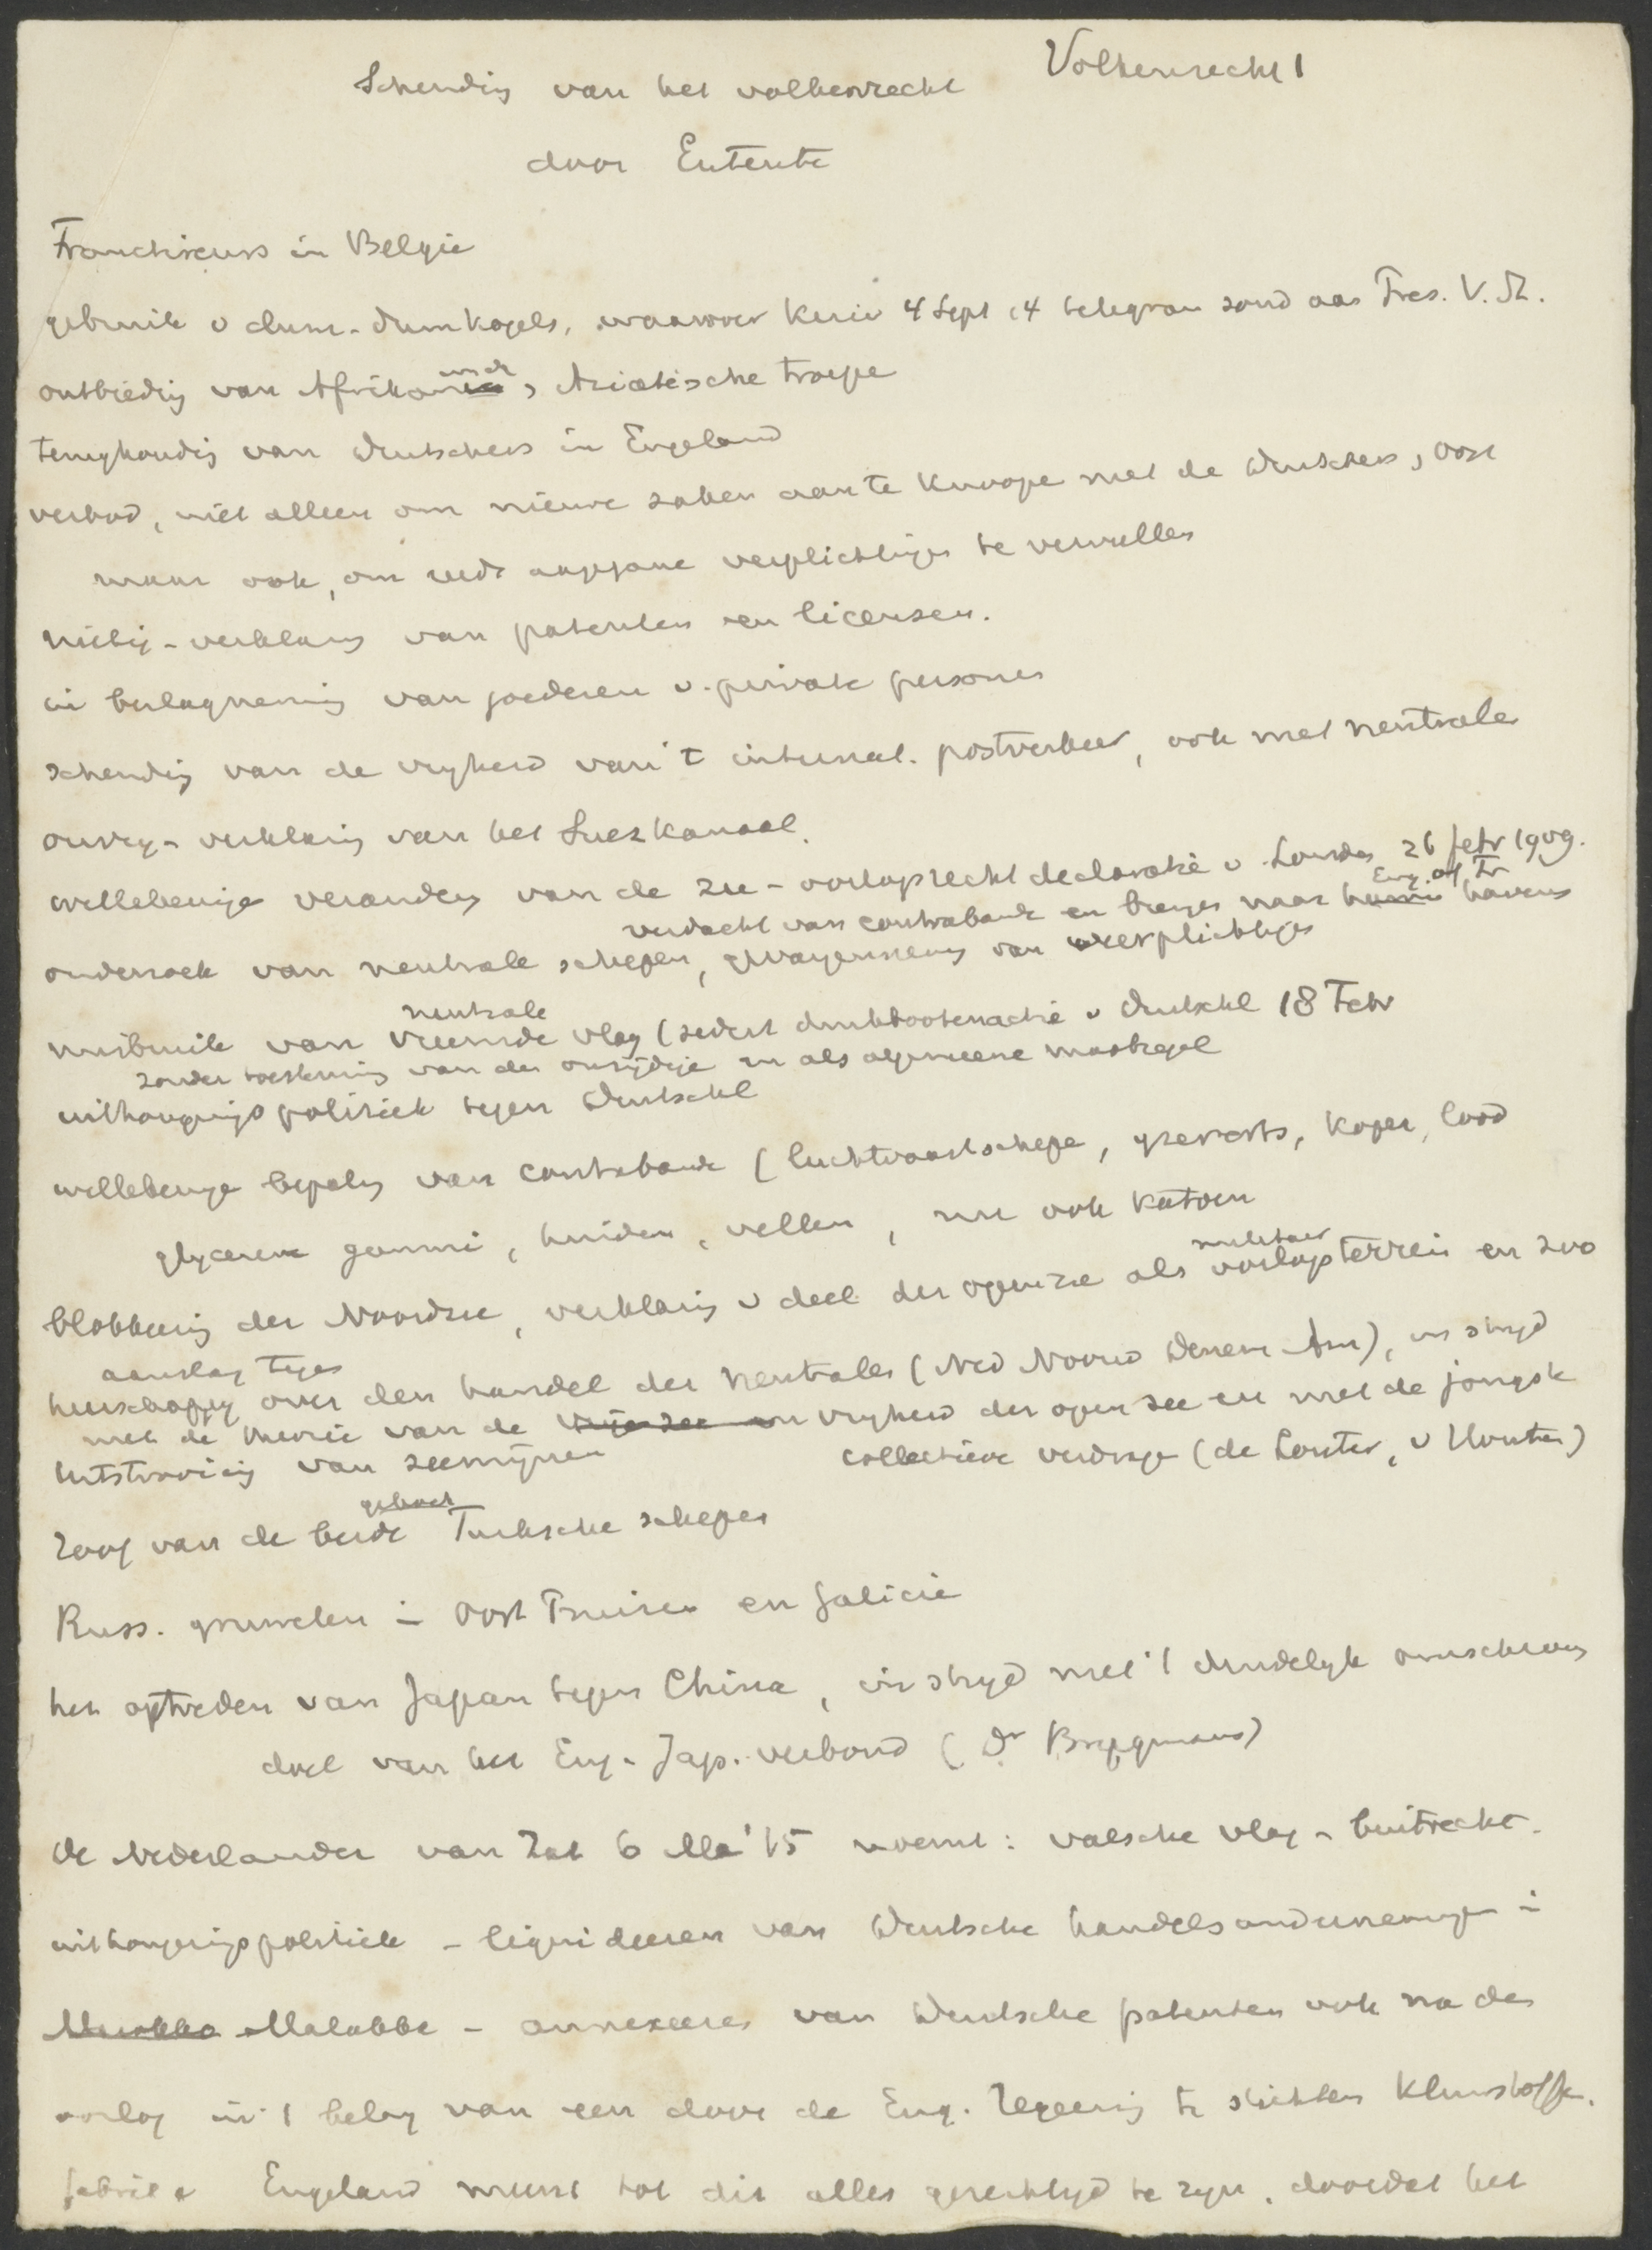 Volkenrecht 1
Schending van het volkenrecht
door Entente
Franctireurs in Belgie
gebruik v dum-dumkogels, waarover Keizer 4 Sept 14 telegram zond aan Pres. V. St.
ontbieding van Afrikaansche, Aziatische troepe
terughoudig van Duitschers in Engeland
verbod, niet alleen om nieuwe zaken aan te knoope met de Duitschers,
maar ook, om reeds aangegane verplichtigen te vervullen
nietig-verklaring van patenten en licensen.
in beslagneming van goederen v. private personen
schendig van de vryheid van 't internat. postverkeer, ook met neutrale
onvrij-verklaring van het Suezkanaal.
willekeurige verandering van de zee-oorlogsrecht declaratie v. Londen 26 febr 1909.
verdacht van contrabande en brengen naar Eng. of Fr havens
onderzoek van neutrale schepen, gevangenneming van weerplichtigen
neutrale
misbruik van vreemde vlag (sedert duikbootenactie v Duitschl 18 Febr
zonder toestemming van den onzijdige en als algemeene maatregel
uithongerings politiek tegen Duitschl
willekeurige bepaling van contrabande (luchtvaartschepe, yzererts, koper, lood
glycerine gommi, huiden, vellen, nu ook katoen
militair
blokkeering der Noordzee, verklaring v deel der openzee als oorlogsterrein en zoo
aanslag tegen
heerschappy over den handel der neutralen (Ned Noorw Denem Am), in stryd
met de theorie van de vrije zee en vryheid der open zee en met de jongste
uitstrooiing van zeemijnen
collectieve verdrage (de Louter, v Houten)
gekocht
roof van de beide Turksche schepen
Russ. gruwelen in Oost Pruisen en Galicie
het optreden van Japan tegen China, in stryd met 't duidelyk omschreven
doel van het Eng-Jap. verbond (Dr Brugmans)
De Nederlander van Zat 6 Mrt '15 noemt: valsche vlag - buitrecht -
uithongeringspolitiek - liquideeren van Duitsche handelsondernemingen in
Malakka - annexeeren van Duitsche patenten ook na den
oorlog in 't belang van een door de Eng. regeering te stichten kleurstoffe.
fabriek Engeland meent tot dit alles gerechtigd te zyn, doordat het